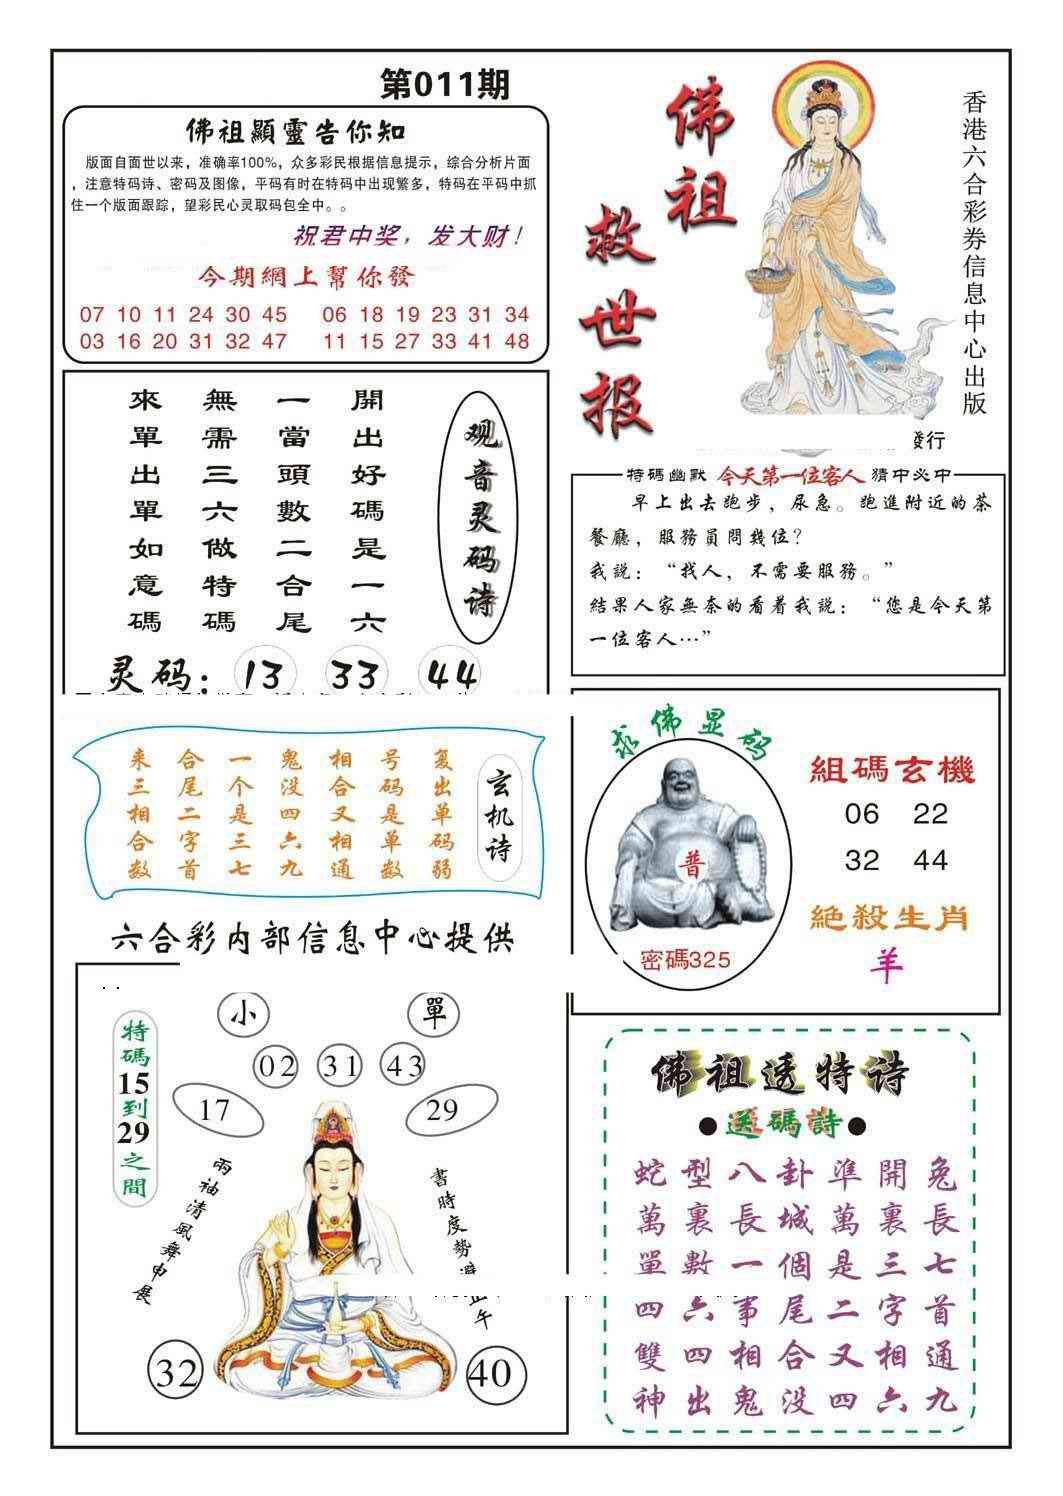 第011期
佛祖顯靈告你知
版面自面世以来，准确率100%，众多彩民根据信息提示，综合分析片面
，注意特码诗、密码及图像，平码有时在特码中出现繁多，特码在平码中抓
住一个版面跟踪，望彩民心灵取码包全中。。
祝君中奖，发大财！
今期網上幫你發
07 10 11 24 30 45 06 18 19 23 31 34
03 16 20 31 32 47 11 15 27 33 41 48
佛祖
救世报
香港六合彩券信息中心出版
發行
观音灵码诗
開出好碼是一六
一當頭數二合尾
無需三六做特碼
來單出單如意碼
灵码：13 33 44
特碼幽默 今天第一位客人 猜中必中
早上出去跑步，尿急。跑進附近的茶
餐廳，服務員問幾位？
我説：“找人，不需要服務。”
結果人家無奈的看着我説：“您是今天第
一位客人…”
玄机诗
复出单码弱
号码是单数
相合又相通
鬼没四六九
一个是三七
合尾二字首
来三相合数
求佛显码
普
密碼325
組碼玄機
06 22
32 44
絕殺生肖
羊
六合彩内部信息中心提供
小 單
02 31 43
17 29
特碼15到29之間
兩袖清風舞申展
書時度勢避正午
32 40
佛祖透特诗
●送碼詩●
蛇型八卦準開兔
萬裏長城萬裏長
單數一個是三七
四六事尾二字首
雙四相合又相通
神出鬼没四六九